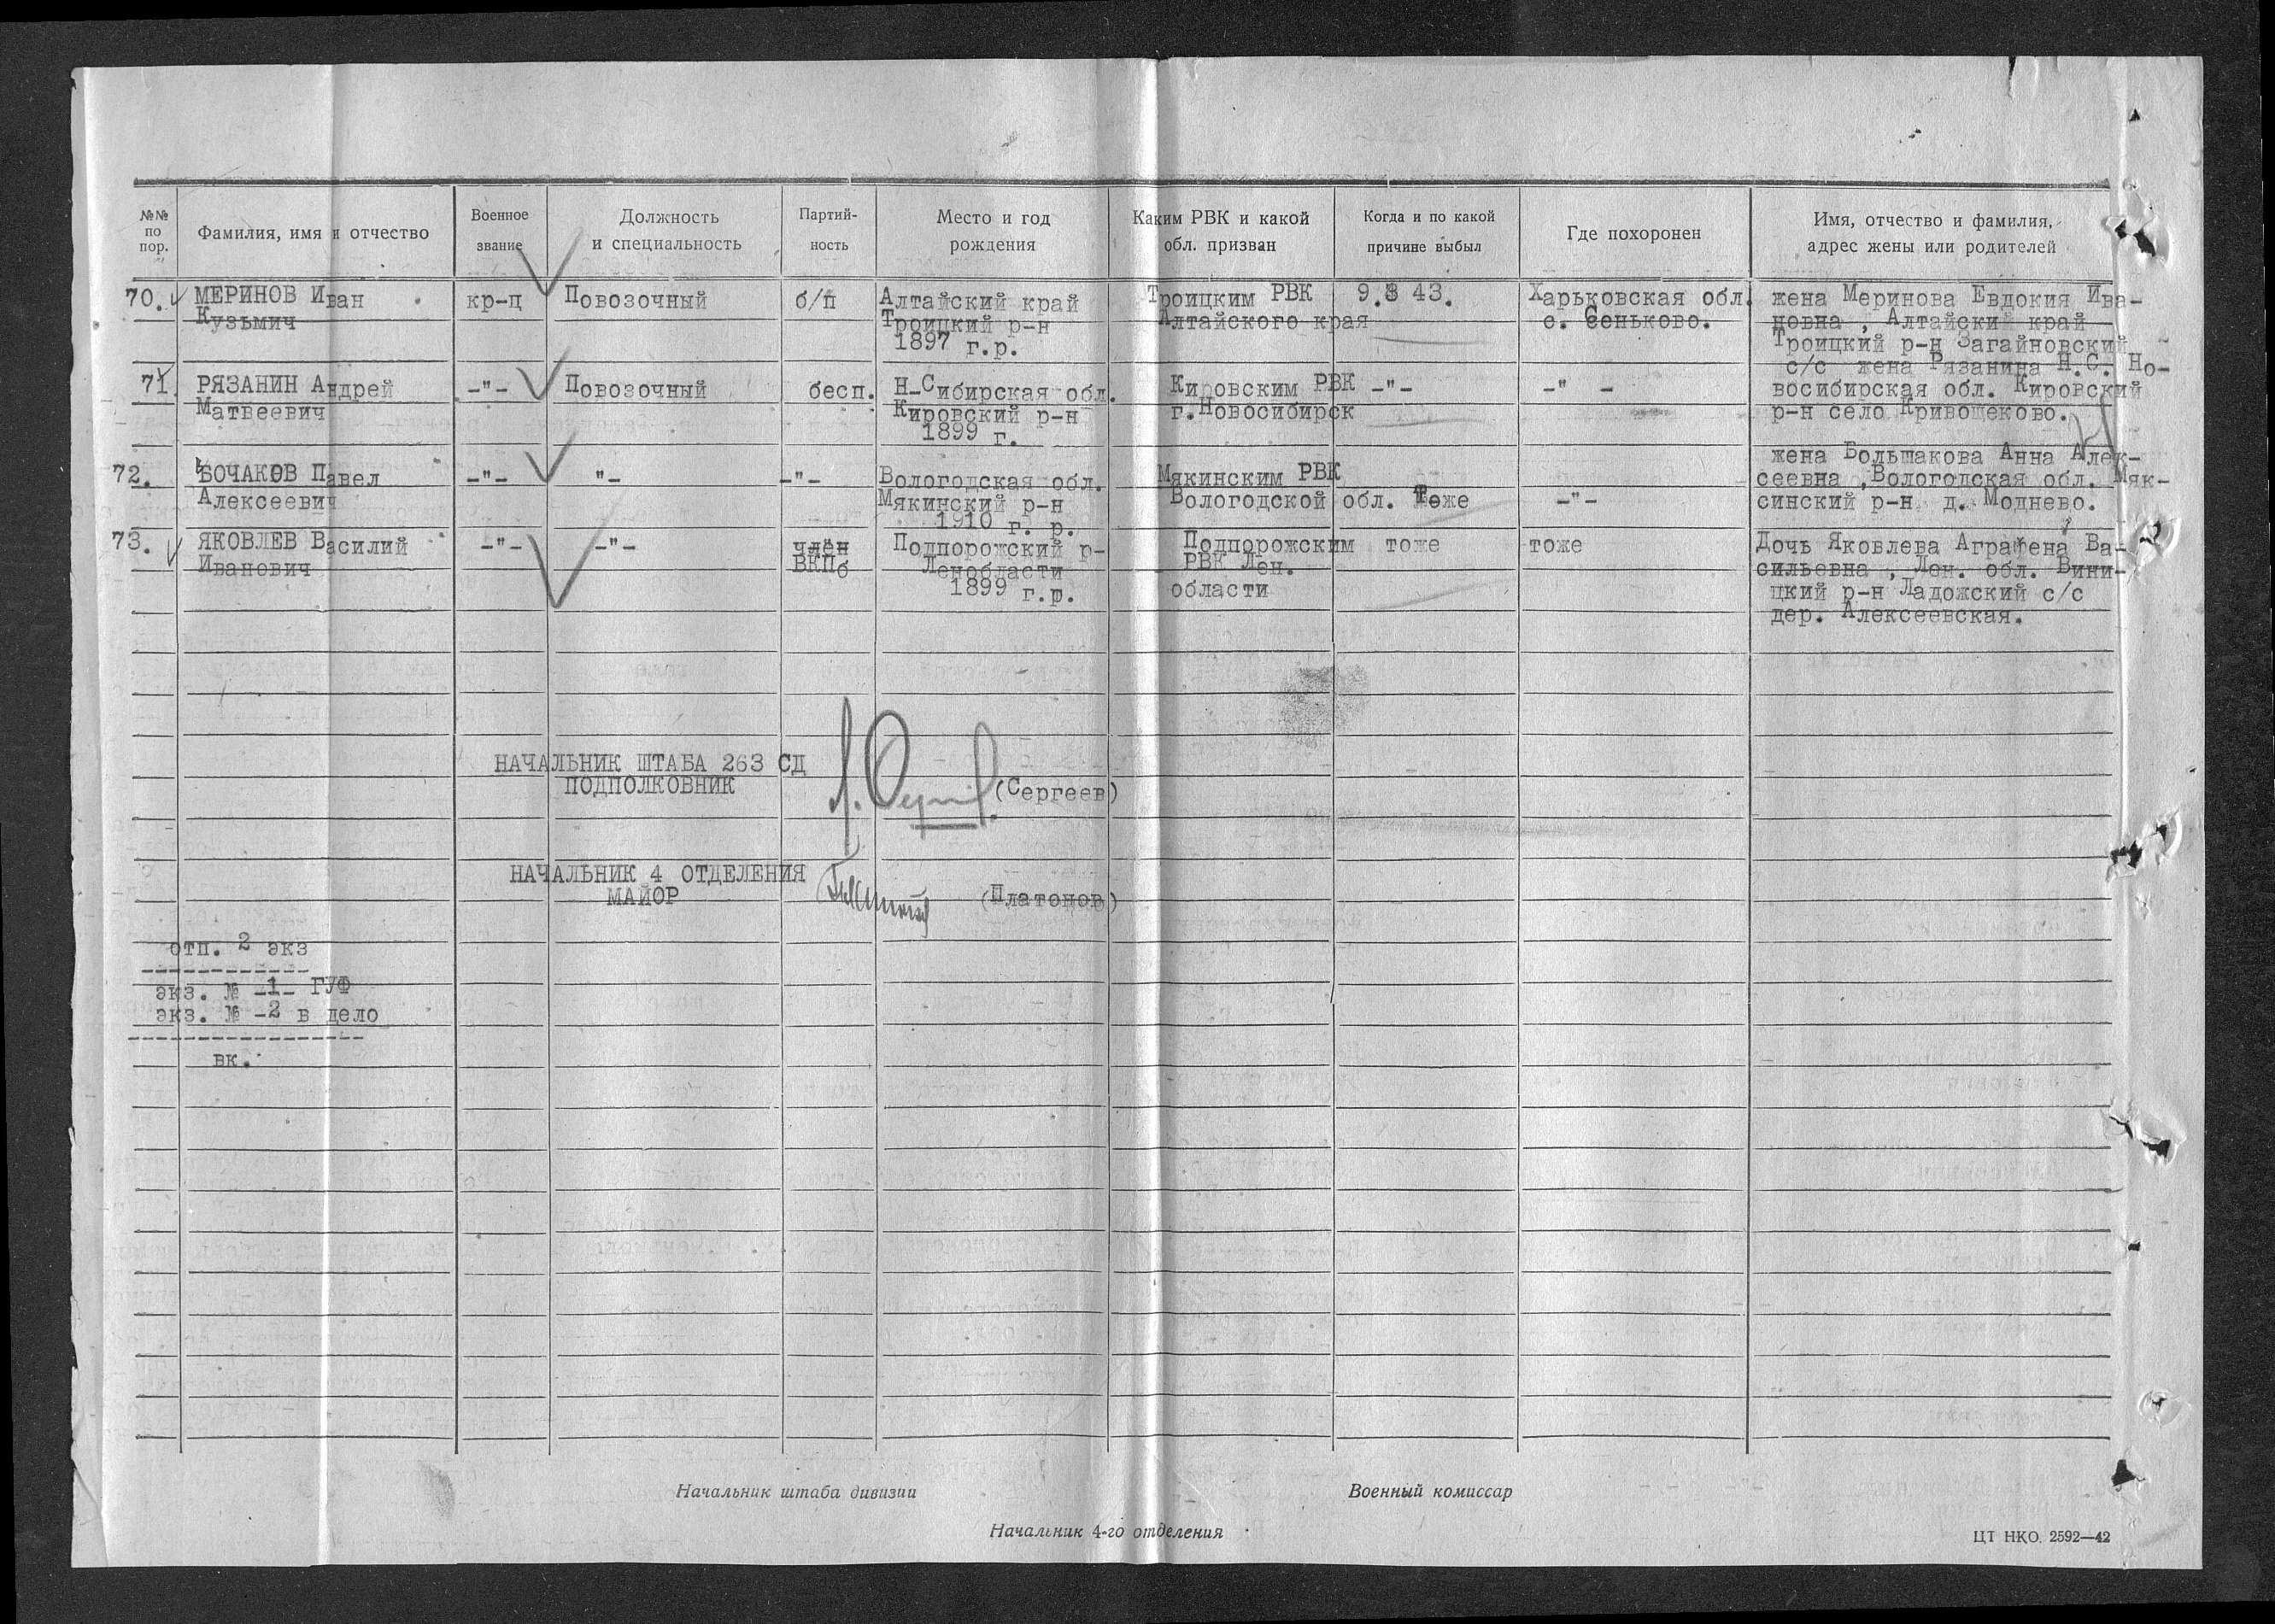 №№ по пор.
Фамилия, имя и отчество
Военное звание
Должность и специальность
Партий-ность
Место и год рождения
Каким РВК и какой обл. призван
Когда и по какой причине выбыл
Где похоронен
Имя, отчество и фамилия, адрес жены или родителей
70. МЕРИНОВ Иван кр-ц Повозочный б/п Алтайский край Троицким РВК 9.8 43. Харьковская обл. жена Меринова Евдокия Ива-
Кузьмич Троицкий р-н Алтайского края с. Сеньково. новна , Алтайский край
1897 г.р. Троицкий р-н Загайновский
с/с жена Рязанина Н.С. Но-
71. РЯЗАНИН Андрей -"- Повозочный бесп. Н-Сибирская обл. Кировским РВК -"- -" - восибирская обл. Кировский
Матвеевич Кировский р-н г.Новосибирск р-н село Кривощеково.
1899 г.
жена Большакова Анна Алек-
72. БОЧАКОВ Павел -"- "- -"- Вологодская обл. Мякинским РВК сеевна ,Вологодская обл. Мяк-
Алексеевич Мякинский р-н Вологодской обл. Тоже -"- синский р-н д. Моднево.
1910 г. р.
73. ЯКОВЛЕВ Василий -"- -"- член Подпорожский р- Подпорожским тоже тоже Дочь Яковлева Аграфена Ва-
Иванович ВКПб Ленобласти РВК Лен. сильевна , Лен. обл. Вини-
1899 г.р. области цкий р-н Ладожский с/с
дер. Алексеевская.
НАЧАЛЬНИК ШТАБА 263 СД
ПОДПОЛКОВНИК (Сергеев)
НАЧАЛЬНИК 4 ОТДЕЛЕНИЯ
МАЙОР (Платонов)
отп. 2 экз
экз. № -1- ГУФ
экз. № -2 в дело
вк.
Начальник штаба дивизии
Военный комиссар
Начальник 4-го отделения
ЦТ НКО. 2592—42